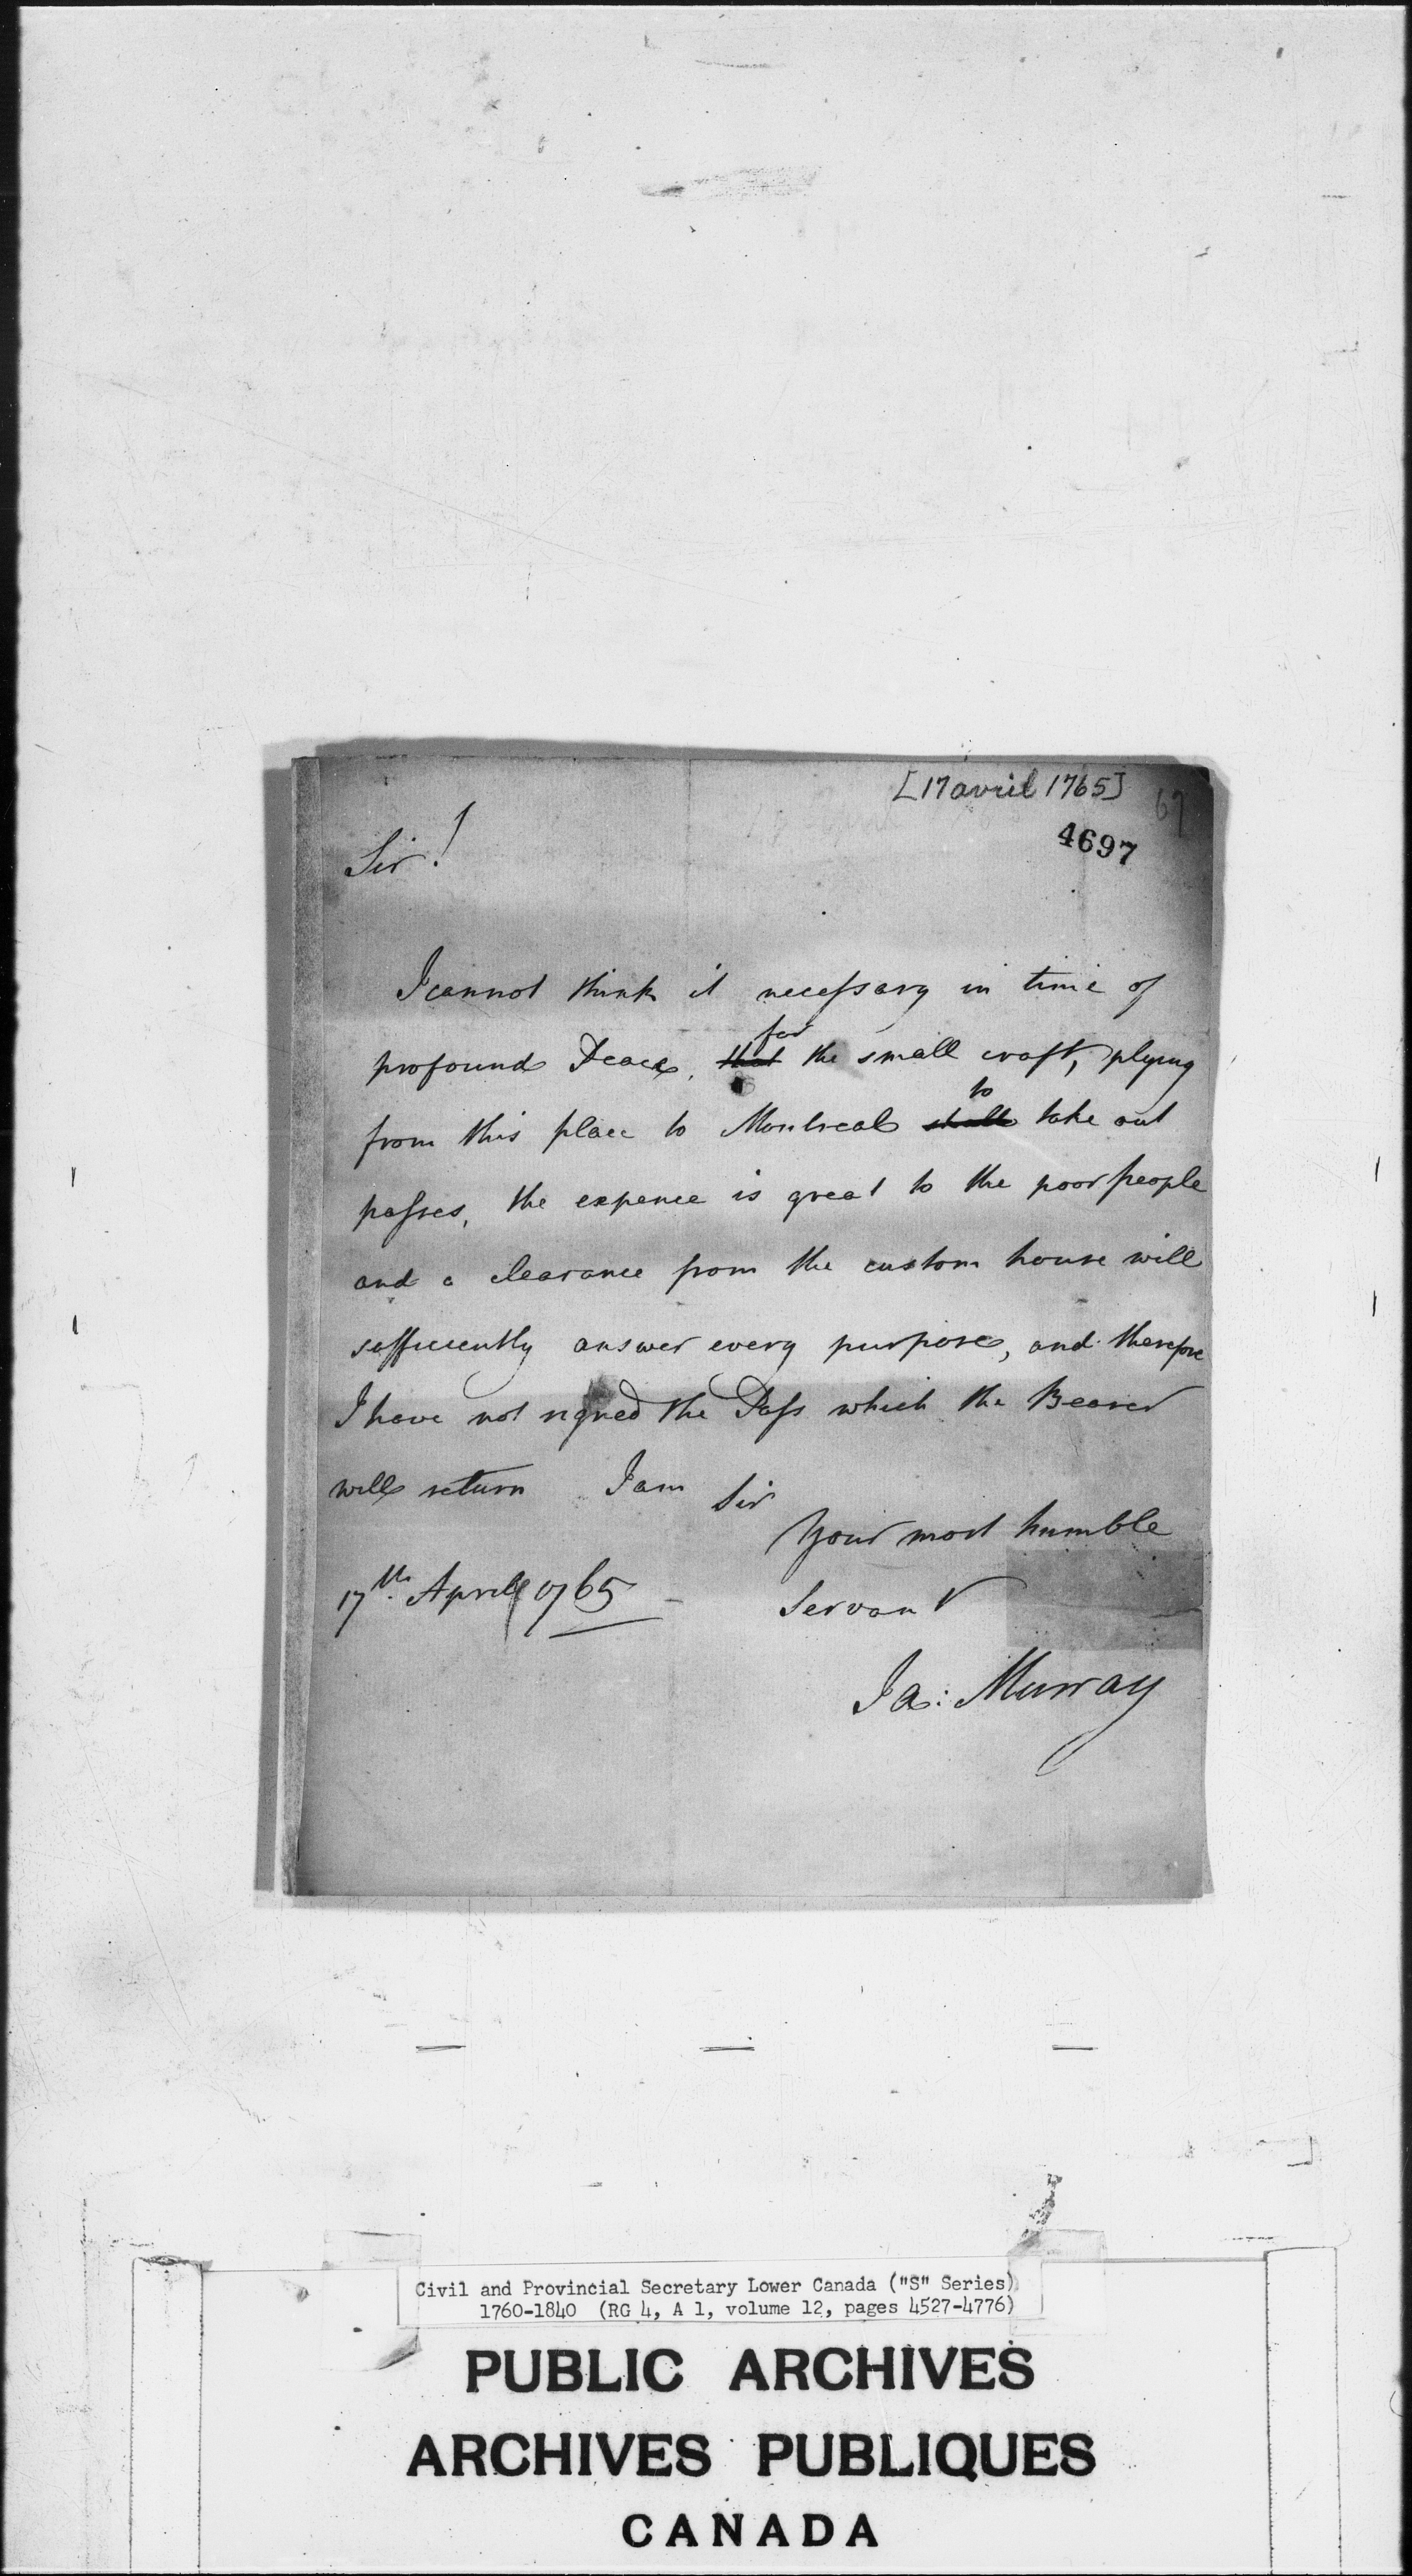 [17 avril 1765]
67
4697
Sir!
I cannot think it necessary in time of
profound Peace, that for the small craft, plying
from this place to Montreal shall to take out
passes, the expence is great to the poor people
and a clearance from the custom house will
sufficiently answer every purpose, and therefore
I have not signed the Pass which the Bearer
will return I am Sir
Your most humble
17th. April 1765
Servant
Ja: Murray
Civil and Provincial Secretary Lower Canada ("S" Series)
1760-1840 (RG 4, A 1, volume 12, pages 4527-4776)
PUBLIC ARCHIVES
ARCHIVES PUBLIQUES
CANADA